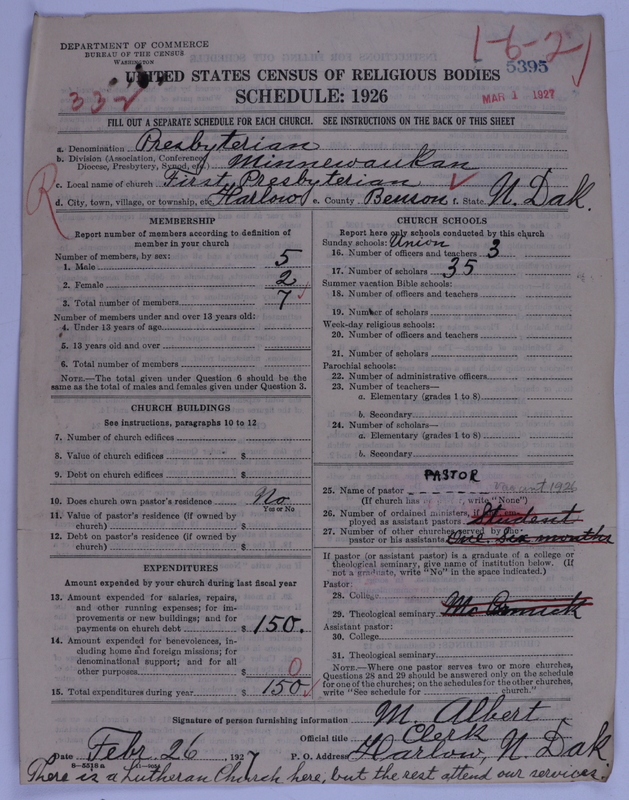 DEPARTMENT OF COMMERCE
BUREAU OF THE CENSUS
WASHINGTON
1-6-21
5395
332
UNITED STATES CENSUS OF RELIGIOUS BODIES
SCHEDULE: 1926
MAR 1 1927
FILL OUT A SEPARATE SCHEDULE FOR EACH CHURCH. SEE INSTRUCTIONS ON THE BACK OF THIS SHEET
a. Denomination Presbyterian
b. Division (Association, Conference, Diocese, Presbytery, Synod, etc.) Minnewaukan
R
c. Local name of church First Presbyterian
d. City, town, village, or township, etc. Harlow e. County Benson f. State N. Dak.
MEMBERSHIP
Report number of members according to definition of
member in your church
Number of members, by sex:
1. Male 5
2. Female 2
3. Total number of members 7
Number of members under and over 13 years old:
4. Under 13 years of age
5. 13 years old and over
6. Total number of members
NOTE.—The total given under Question 6 should be the
same as the total of males and females given under Question 3.
CHURCH BUILDINGS
See instructions, paragraphs 10 to 12
7. Number of church edifices
8. Value of church edifices $
9. Debt on church edifices $
10. Does church own pastor's residence No
Yes or No
11. Value of pastor's residence (if owned by
church) $
12. Debt on pastor's residence (if owned by
church) $
EXPENDITURES
Amount expended by your church during last fiscal year
13. Amount expended for salaries, repairs,
and other running expenses; for im-
provements or new buildings; and for
payments on church debt $ 150.
14. Amount expended for benevolences, in-
cluding home and foreign missions; for
denominational support; and for all
other purposes $ 0
15. Total expenditures during year $ 150
CHURCH SCHOOLS
Report here only schools conducted by this church
Sunday schools: Union
16. Number of officers and teachers 3
17. Number of scholars 35
Summer vacation Bible schools:
18. Number of officers and teachers
19. Number of scholars
Week-day religious schools:
20. Number of officers and teachers
21. Number of scholars
Parochial schools:
22. Number of administrative officers
23. Number of teachers—
a. Elementary (grades 1 to 8)
b. Secondary
24. Number of scholars—
a. Elementary (grades 1 to 8)
b. Secondary
PASTOR
25. Name of pastor vacant 1926
(If church has write "None")
26. Number of ordained ministers, if em-
ployed as assistant pastors Student
27. Number of other churches served by the
pastor or his assistants One Six months
If pastor (or assistant pastor) is a graduate of a college or
theological seminary, give name of institution below. (If
not a graduate, write "No" in the space indicated.)
Pastor:
28. College
29. Theological seminary McCormick
Assistant pastor:
30. College
31. Theological seminary
NOTE.—Where one pastor serves two or more churches,
Questions 28 and 29 should be answered only on the schedule
for one of the churches; on the schedules for the other churches,
write "See schedule for church."
Signature of person furnishing information M. Albert
Official title Clerk
Date Febr. 26, 1927 P. O. Address Harlow, N. Dak
8-5518 a
There is a Lutheran Church here, but the rest attend our services.